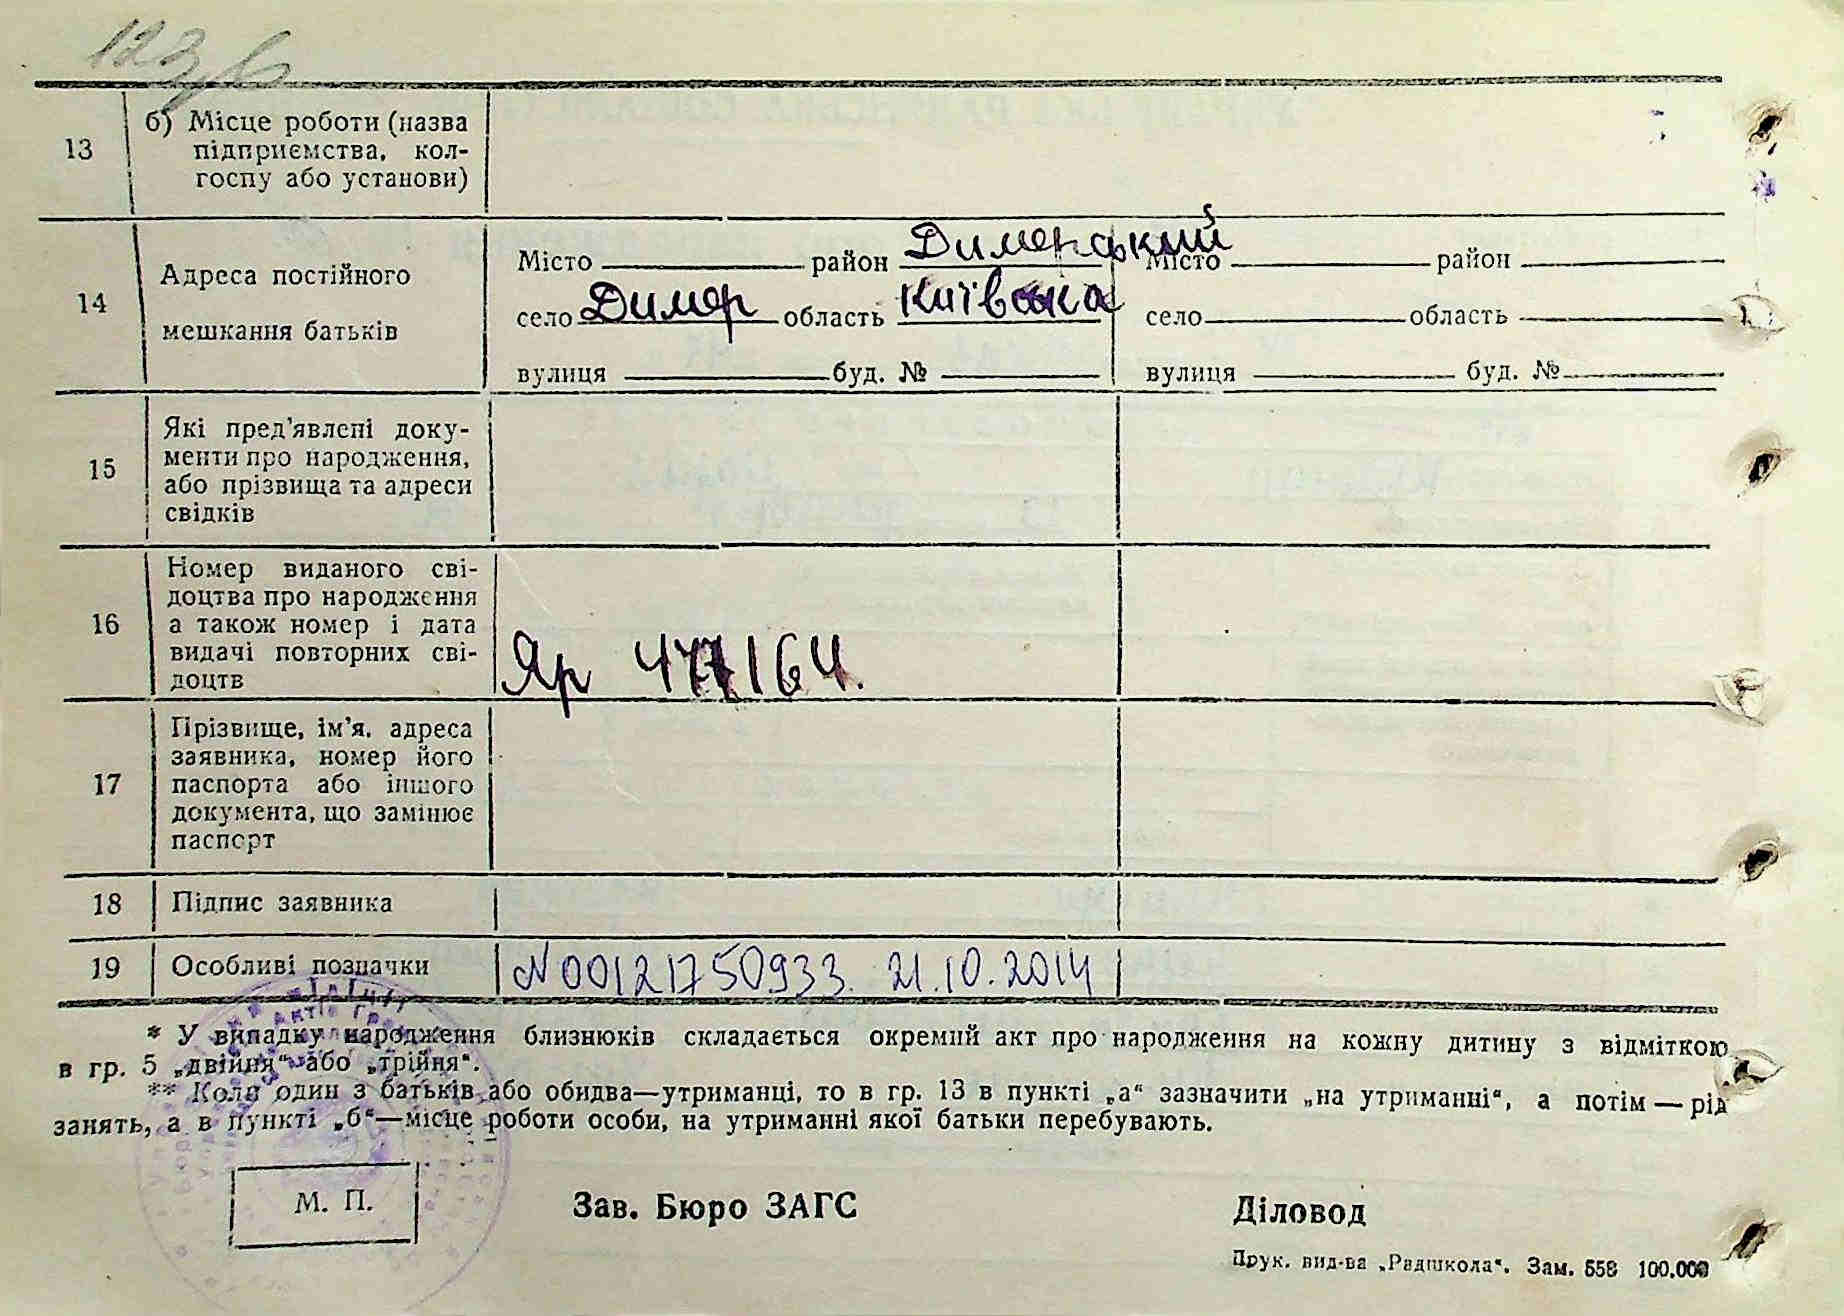 123 б
13 б) Місце роботи (назва
підприємства, кол-
госпу або установи)
14 Адреса постійного
мешкання батьків
Місто район Димерський Місто район
село Димер область Київська село область
вулиця буд. № вулиця буд. №
15 Які пред'явлені доку-
менти про народження,
або прізвища та адреси
свідків
16 Номер виданого сві-
доцтва про народження
а також номер і дата
видачі повторних сві-
доцтв
Яр 477164.
17 Прізвище, ім'я, адреса
заявника, номер його
паспорта або іншого
документа, що замінює
паспорт
18 Підпис заявника
19 Особливі позначки N00121750933. 21.10.2014
* У випадку народження близнюків складається окремий акт про народження на кожну дитину з відміткою
в гр. 5 „двійня“ або „трійня“.
** Коли один з батьків або обидва—утриманці, то в гр. 13 в пункті „а“ зазначити „на утриманні“, а потім — рід
занять, а в пункті „б“—місце роботи особи, на утриманні якої батьки перебувають.
М. П. Зав. Бюро ЗАГС Діловод
Прук. вид-ва „Радшкола“. Зам. 558 100.000